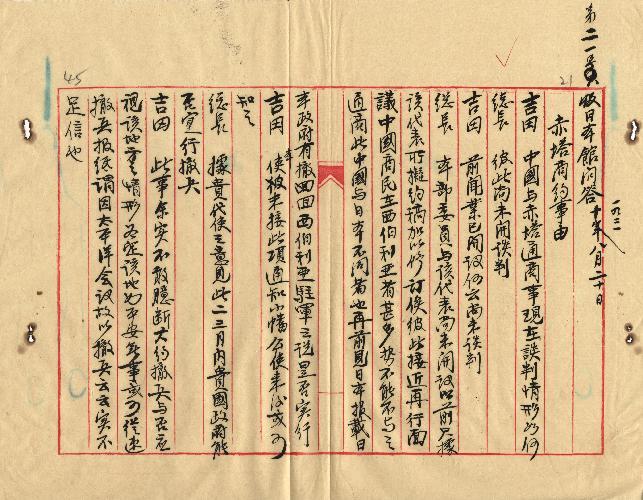 第二一〇号 收日本館問答 十年八月二十日
一九二一
21
赤塔商約事由
吉田　中國与赤塔通商事現在談判情形如何
總長　彼此尚未開談判
吉田　前聞業已開議何云尚未談判
總長　本部委員与該代表尚未開議以前只據
該代表所擬約稿加以修訂俟彼此接近再行面
議中國商民在西伯利亞者甚多勢不能不与之
通商此中國与日本不同者也再前見日本报載日
本政府有撤回西伯利亞駐軍之說是否实行
吉田　本使板未接此項通知小幡公使来後或可
知之
總長　據貴代使之意見此二三月內貴國政府能
否宣行撤兵
吉田　此事余实不敢臆断大約撤兵与否应
視該地之情形为定該地如平安無事或可從速
撤兵报纸謂因太平洋会议故以撤兵云云实不
足信也
45